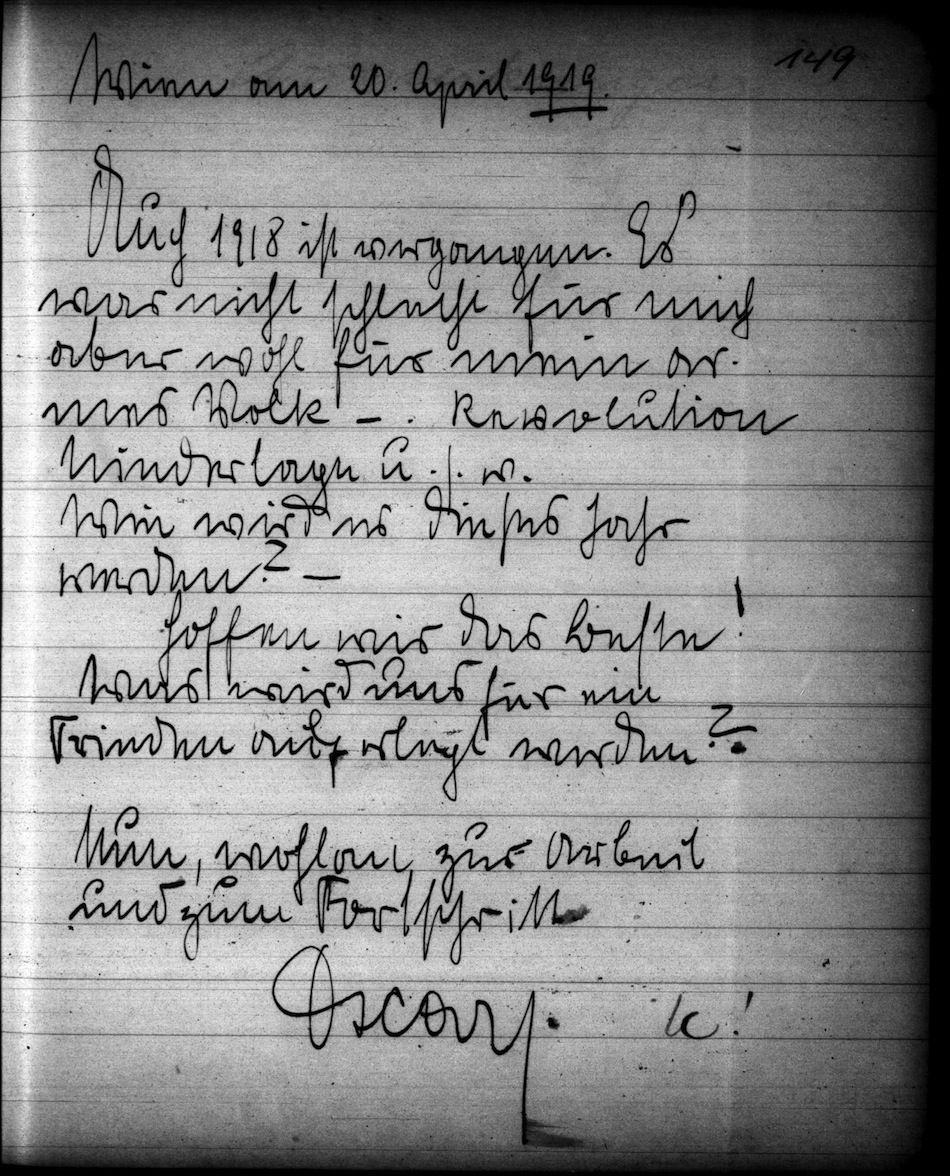 149
Wien am 20. April 1919.
Auch 1918 ist vergangen. Es
war nicht schlecht für mich
aber wohl für mein ar-
mes Volk – . Revolution
Niederlage u. s. w.
Wie wird es dieses Jahr
werden? –
Hoffen wir das Beste!
Was wird uns für ein
Frieden auferlegt werden?
Nun, wohlan, zur Arbeit
und zum Fortschritt
Oscar